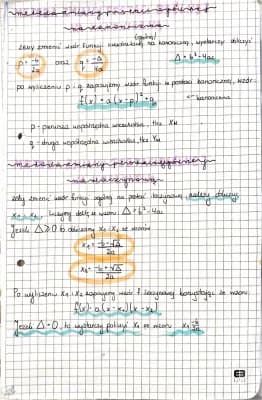 metoda zmiany postaci ogólnej
na kanoniczną
(ogólny)
żeby zmienić wzór funkcji kwadratowej na kanoniczną, wystarczy obliczyć
p = -b/2a oraz q = -Δ/4a Δ = b²-4ac
po wyliczeniu p i q zapisujemy wzór funkcji w postaci kanonicznej, wzór:
f(x) = a(x-p)²+q ← kanoniczna
p - pierwsza współrzędna wierzchołka, tzw. Xw
q - druga współrzędna wierzchołka, tzw. Yw
metoda zmiany postaci ogólnej
na iloczynową
żeby zmienić wzór funkcji ogólnej na postać iloczynową należy obliczyć
x₁ i x₂, liczymy deltę ze wzoru Δ = b²-4ac
Jeżeli Δ≥0 to obliczamy x₁ i x₂ ze wzorów
x₁ = -b-√Δ/2a
x₂ = -b+√Δ/2a
Po wyliczeniu x₁ i x₂ zapisujemy wzór f. iloczynowej korzystając ze wzoru
f(x) = a(x-x₁)(x-x₂)
Jeżeli Δ=0, to wystarczy policzyć x₀ ze wzoru x₀ = -b/2a